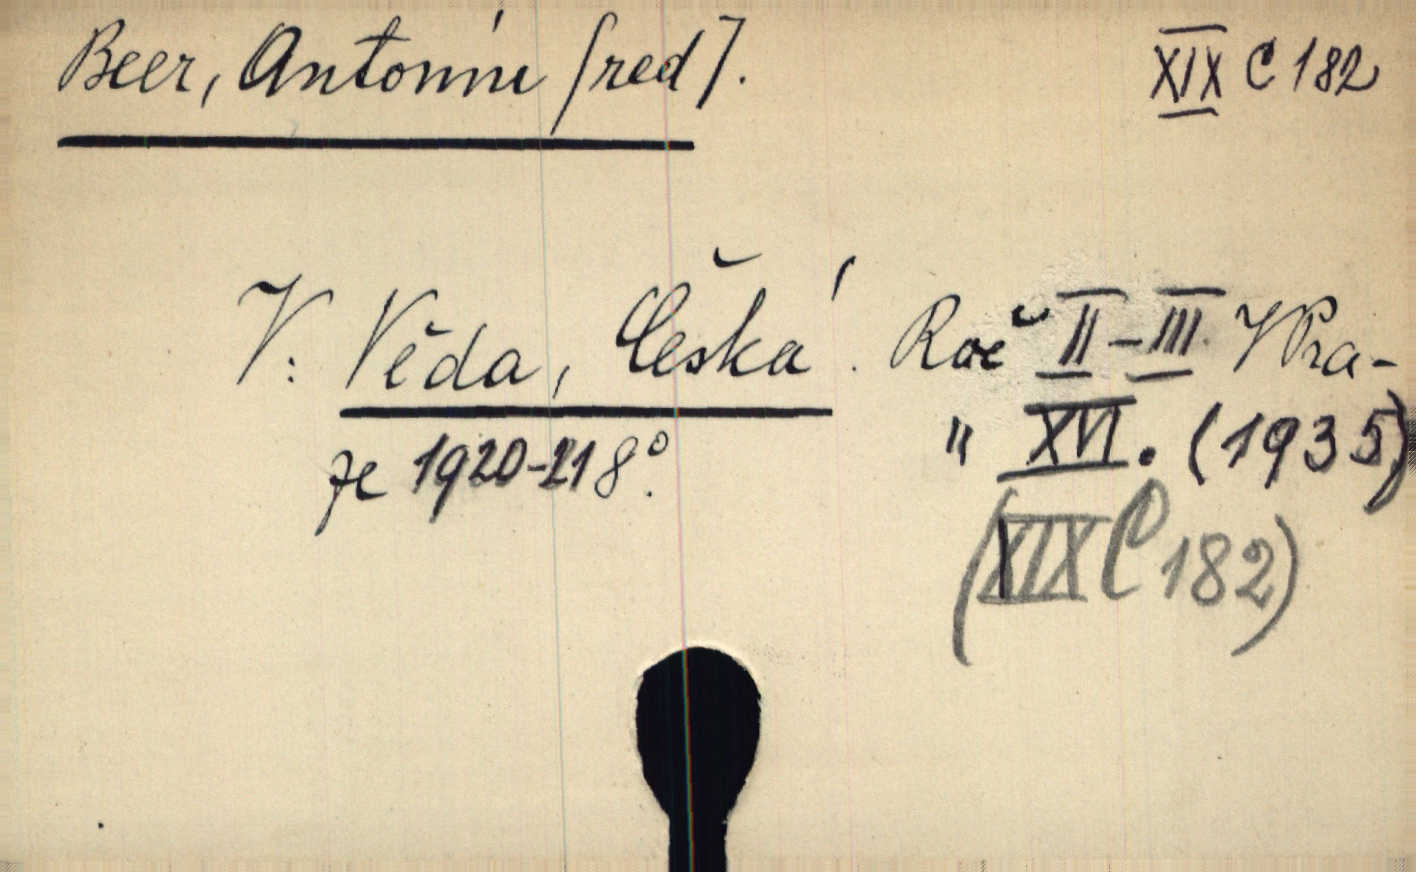 Beer, Antonín [red].
XIX C 182
V: Věda, Česká. Roč II-III. V Pra-
" XVI. (1935)
ze 1920-21 8°.
(XIX C 182)